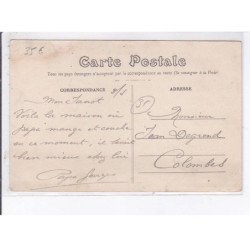 35 €
Carte Postale
Tous les pays étrangers n'acceptent pas la correspondance au recto (Se renseigner à la Poste)
CORRESPONDANCE
ADRESSE
Mon
Voilà la maison où
papa mange et couche
en ce moment, il serait
bien mieux chez lui
Monsieur
Jean Degrend
Colombes